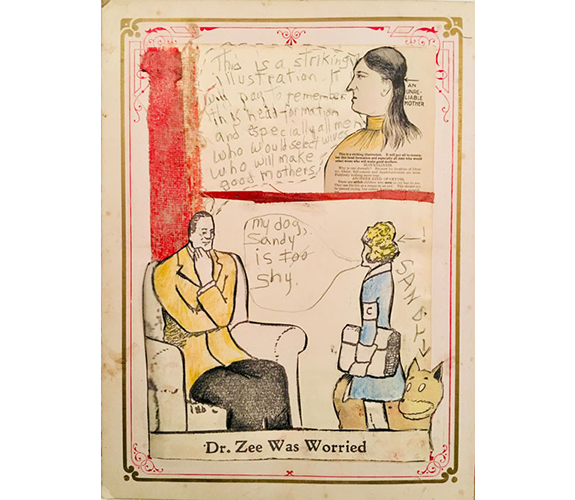 This is a striking
illustration. It
will pay to remember
this head formation
and especially all men
who would select wives
who will make
good mothers!
AN
UNRE-
LIABLE
MOTHER
This is a striking illustration. It will pay all to remem-
ber this head formation and especially all men who would
select wives who will make good mothers.
my dog,
Sandy
is too
shy.
!
C
SANDY
Dr. Zee Was Worried